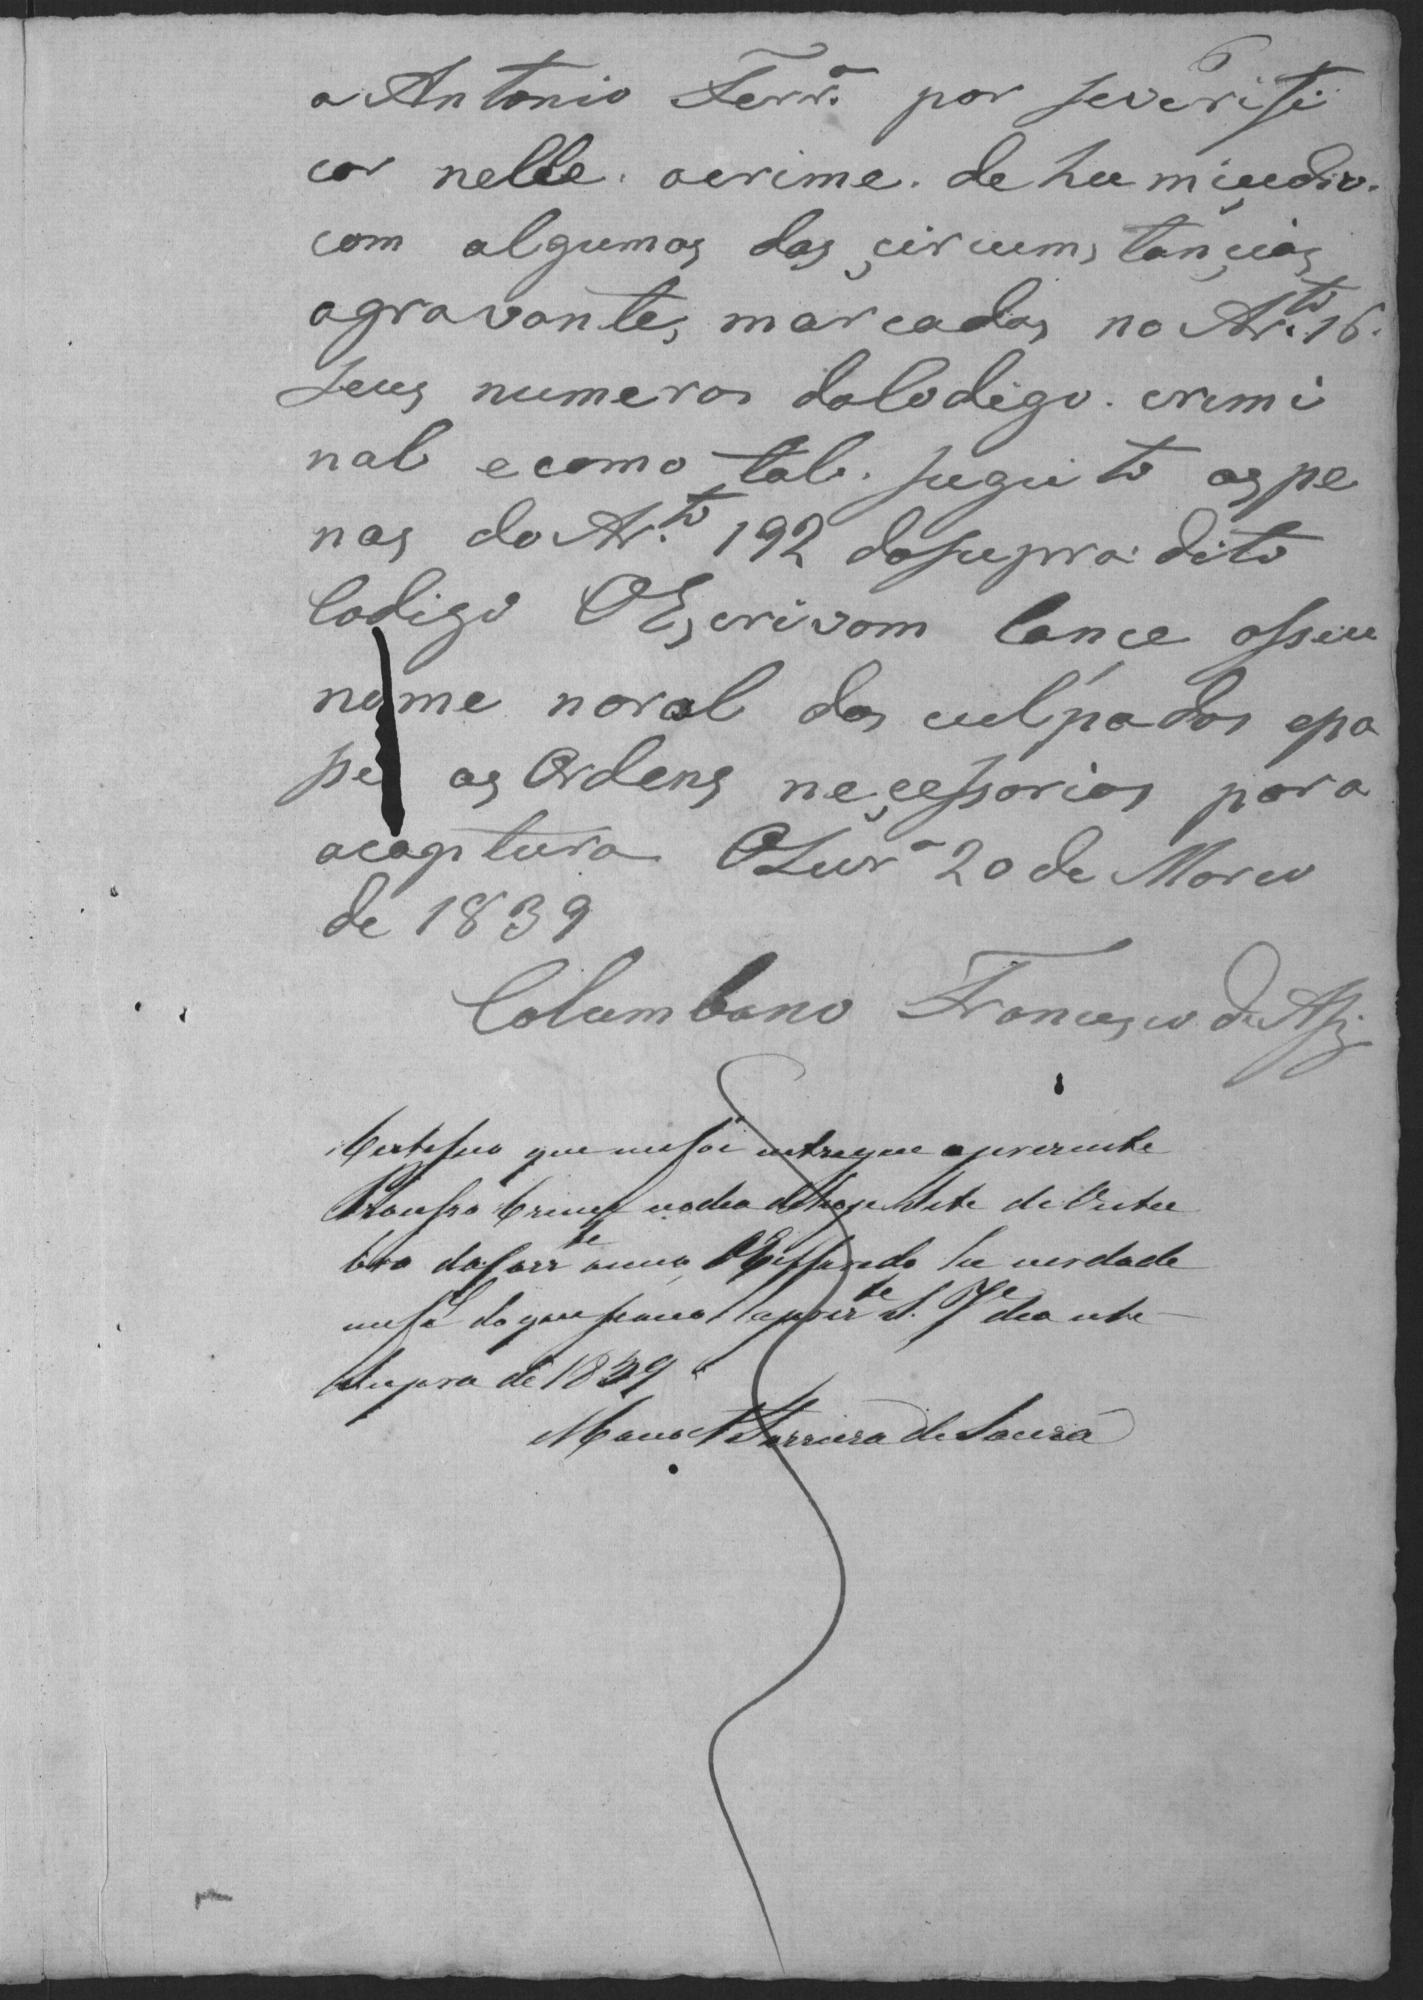 a Antonio Ferr.ª por severifi
car nelle. ocrime. de humiçidio.
com algumas das çircumstançias
agravantes, marcadas no Ar.to 16.
seus numeros doCodigo. crimi
nal e como tal. sugeito aspe
nas do Ar.to 192 dosupra dito
Codigo OEscrivam lance osseu
nome norol dos culpados epa
se as Ordens neçessarias para
acaptura Lur.ª 20 de Março
de 1839
Columbano Francisco de Assiz
Certefico que mefoi entregue oprezente
Prosseço Crime nodia dehoje Sete de Outu
bro docorr.te anno Oreferido he verdade
supra de 1839
Manoel Ferreira de Souza